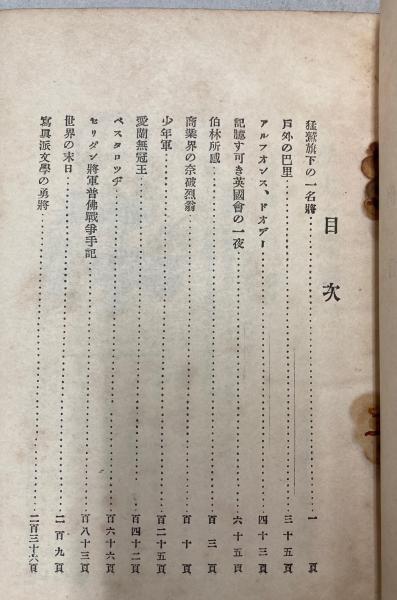 目次
猛獄旗下の一名將……一頁
戶外の巴里……三十五頁
アルフオンス、ドオデー……四十三頁
記臆す可き英國會の一夜……六十五頁
伯林所感……百三頁
商業界の奈破烈翁……百十頁
少年軍……百二十五頁
愛蘭無冠王……百四十二頁
ペスタロツヂ……百六十六頁
セリダン將軍普佛戰爭手記……百八十三頁
世界の末日……二百九頁
寫眞派文學の勇將……二百三十六頁